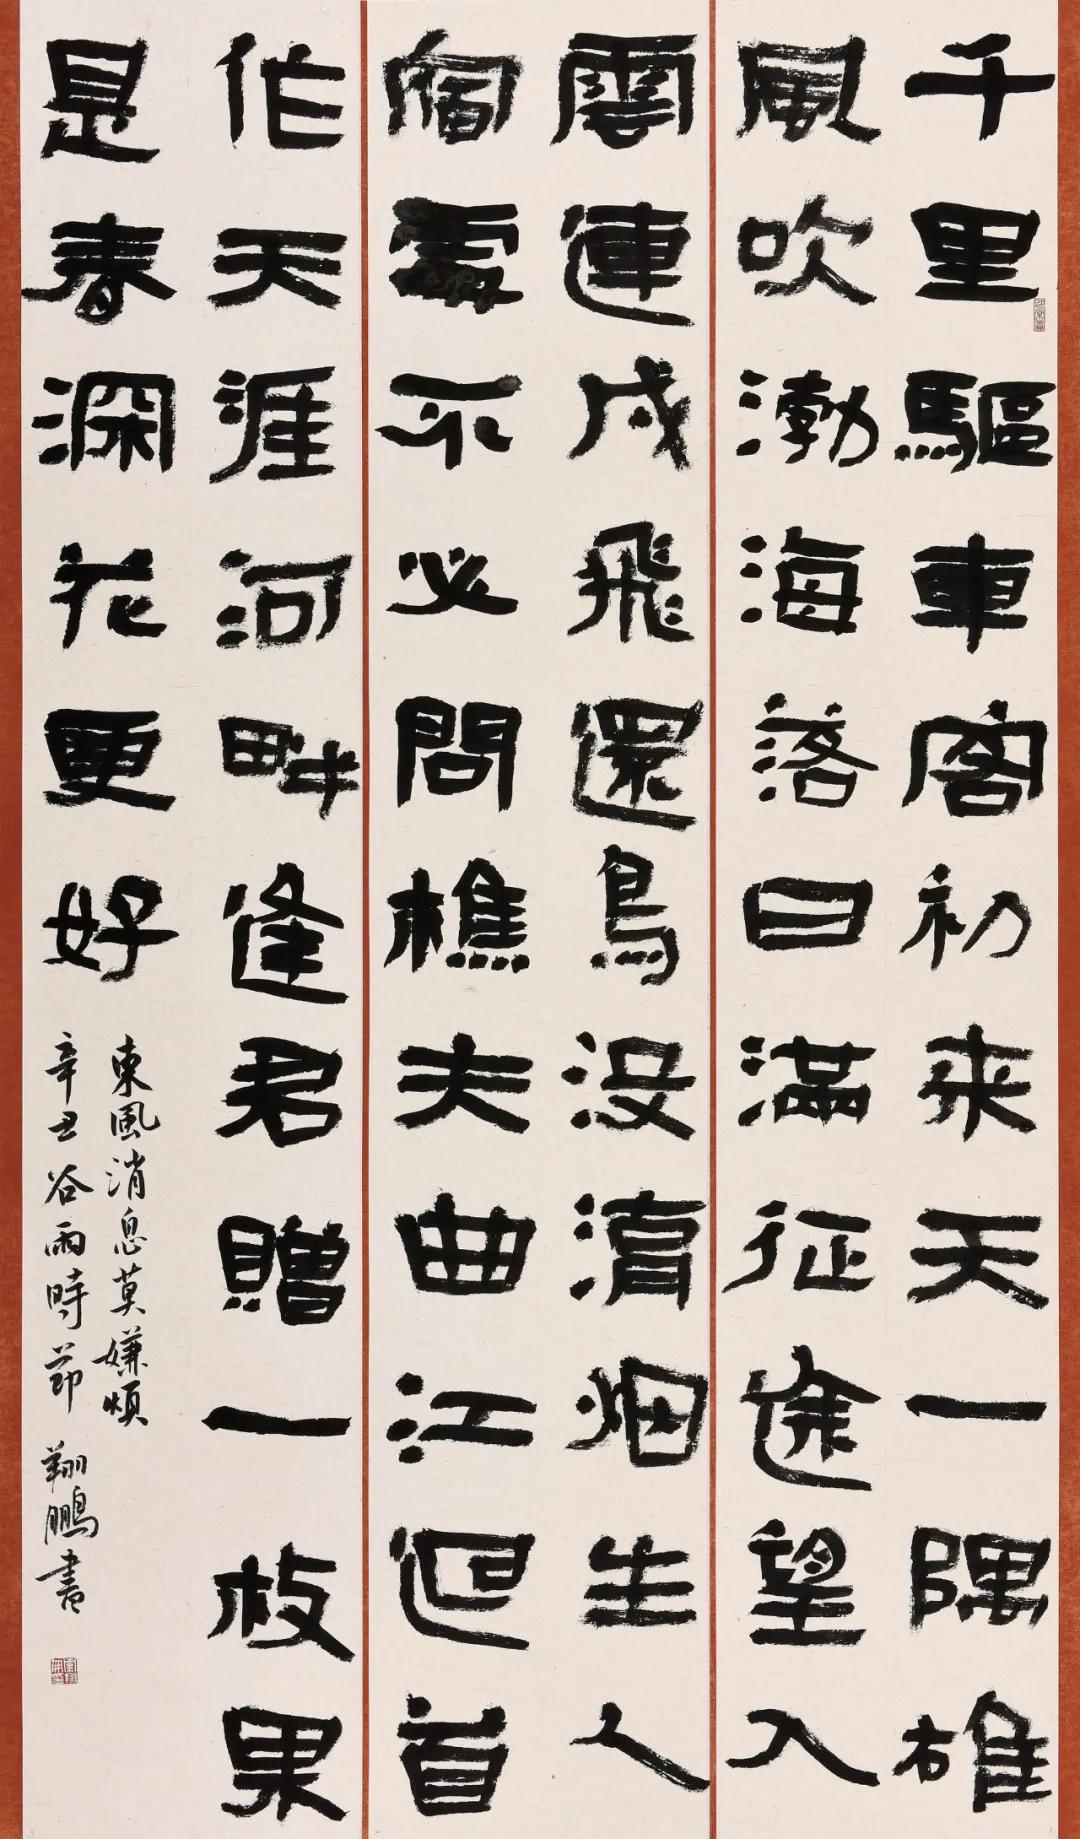 千里驅車客初来天一隅雄
風吹渤海落日滿征途望入
雲連戍飛還鳥没烟生人
宿處不必問樵夫曲江迴首
作天涯河畔逢君贈一枝果
是春深花更好
東風消息莫嫌煩
辛丑谷雨時節 翔鵬書